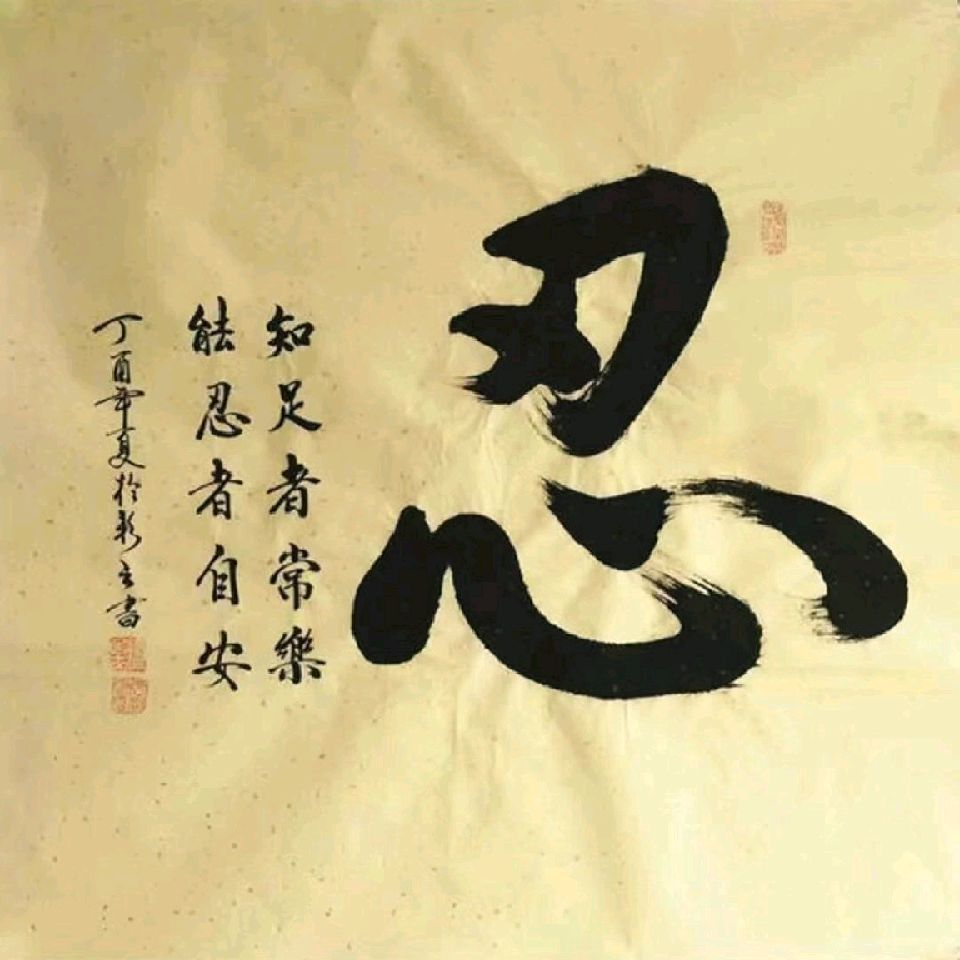 忍
知足者常樂
能忍者自安
丁酉年夏於彩云書